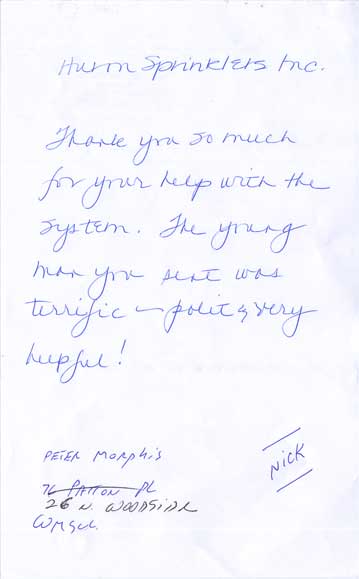 Huron Sprinklers Inc.
Thank you so much
for your help with the
system. The young
man you sent was
terrific — polite & very
helpful!
PETER MORPHIS
NICK
PATTON PL
26 N. WOODSIDE